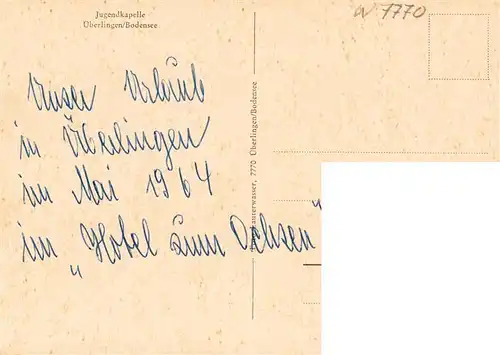 Jugendkapelle
Überlingen/Bodensee
W 7770
Unser Urlaub
in Überlingen
im Mai 1964
im „Hotel zum Ochsen"
Lauterwasser, 7770 Überlingen/Bodensee